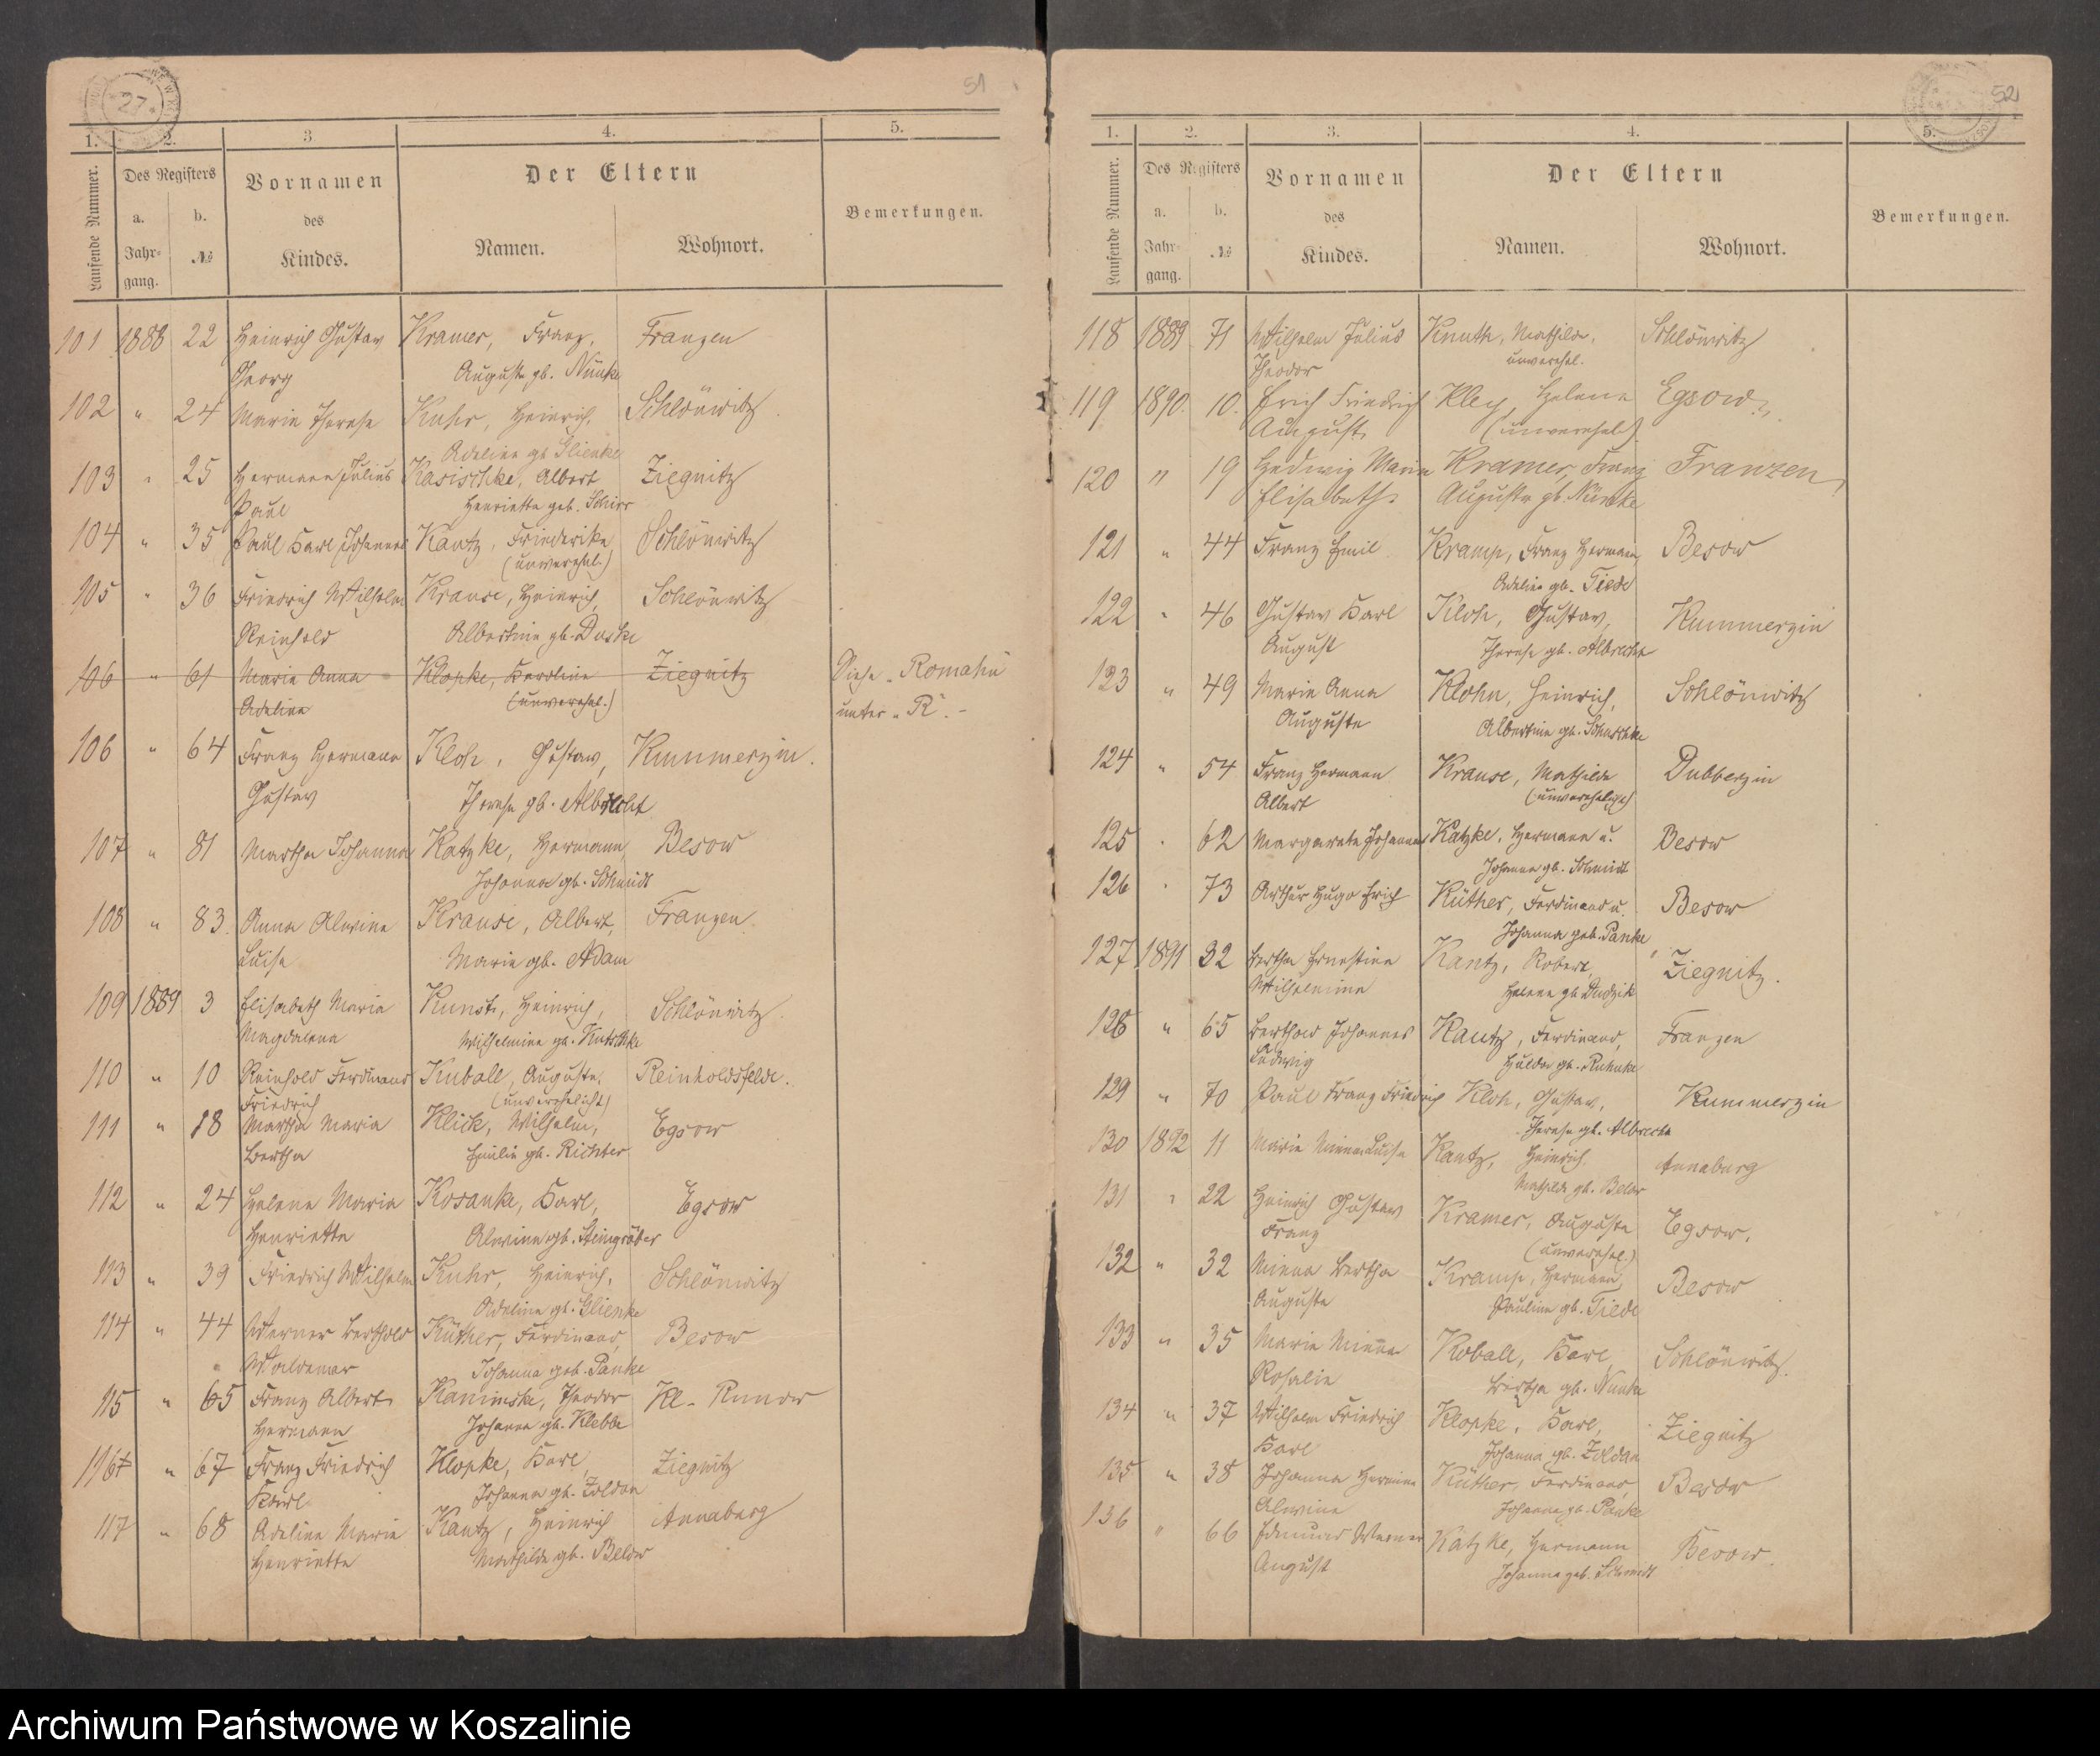 27
51
1. 2. 3 4. 5.
Laufende Nummer.
Des Registers
a. Jahrgang.
b. №
Vornamen des Kindes.
Der Eltern
Namen.
Wohnort.
Bemerkungen.
101 1888 22 Heinrich Gustav Kramer, Franz, Franzen
Georg Auguste gb. Nünke
102 " 24 Marie Therese Kuhr, Heinrich, Schlönwitz
Adeline gb Glienke
103 " 25 Hermann Julius Kasischke, Albert Ziegnitz
Paul Henriette geb. Schirr
104 " 35 Paul Karl Johannes Kantz, Friederike Schlönwitz
(unverehel.)
105 " 36 Friedrich Wilhelm Krause, Heinrich, Schlönwitz
Reinhold Albertine gb. Duske
106 " 61 Marie Anna Klopke, Karoline Ziegnitz Siehe "Romahn
Adeline (unverehel.) unter "R". -
106 " 64 Franz Hermann Kloh, Gustav, Kummerzin.
Gustav Therese gb. Albrecht
107 " 81 Martha Johanna Katzke, Hermann, Besow
Johanna gb. Schmidt
108 " 83. Anna Alwine Krause, Albert, Franzen
Luise Marie gb. Adam
109 1889 3 Elisabeth Maria Kunst, Heinrich, Schlönwitz.
Magdalena Wilhelmine gb. Kutschke
110 " 10 Reinhold Ferdinand Kuball, Auguste, Reinholdsfelde.
Friedrich (unverehelicht)
111 " 18 Martha Maria Klick, Wilhelm, Egsow
Bertha Emilie gb. Richter
112 " 24 Helene Maria Kosanke, Karl, Egsow
Henriette Alwine gb. Steingräber
113 " 39 Friedrich Wilhelm Kuhr, Heinrich, Schlönwitz
Adeline gb. Glienke
114 " 44 Werner Berthold Küther, Ferdinand, Besow
Waldemar Johanna geb. Panke
115 " 65 Franz Albert Kaminske, Theodor Kl- Runow
Hermann Johanna gb. Klebbe
116 " 67 Franz Friedrich Klopke, Karl, Ziegnitz
Karl Johanna gb. Zoldan
117 " 68 Adeline Marie Kantz, Heinrich Annaberg
Henriette Mathilde gb. Below
52
1. 2. 3. 4. 5.
Laufende Nummer.
Des Registers
a. Jahrgang.
b. №
Vornamen des Kindes.
Der Eltern
Namen.
Wohnort.
Bemerkungen.
118 1889 71 Wilhelm Julius Knuth, Mathilde, Schlönwitz
Theodor unverehel.
119 1890. 10. Erich Friedrich Kley, Helene Egsow
August (unverehel.)
120 " 19 Hedwig Marie Kramer, Franz Franzen
Elisabeth Auguste gb. Nünke
121 " 44 Franz Emil Kramp, Franz Hermann, Besow
Adeline gb. Tiede
122 " 46 Gustav Karl Kloh, Gustav, Kummerzin
August Therese gb. Albrecht
123 " 49 Marie Anna Klohn, Heinrich, Schlönwitz
Auguste Albertine gb.
124 " 54 Franz Hermann Krause, Mathilde Dubberzin
Albert (unverehelicht)
125 " 62 Margarete Johanna Katzke, Hermann u. Besow
Johanna gb. Schmidt
126 " 73 Arthur Hugo Erich Küther, Ferdinand u. Besow
Johanna geb. Panke
127 1891 32 Bertha Ernestine Kantz, Robert, Ziegnitz.
Wilhelmine Helene gb Dudzik
128 " 65 Berthold Johannes Kautz, Ferdinand, Franzen
Ludwig Hulda gb. Ruhnke
129 " 70 Paul Franz Friedrich Kloh, Gustav, Kummerzin
Therese gb. Albrecht
130 1892 11 Marie Minna Luise Kantz, Heinrich. Annaberg
Mathilde gb. Below
131 " 22 Heinrich Gustav Kramer, Auguste Egsow.
Franz (unverehel.)
132 " 32 Minna Bertha Kramp, Hermann, Besow
Auguste Pauline gb. Tiede
133 " 35 Marie Minna Koball, Karl, Schlönwitz.
Rosalie Bertha gb. Nünke
134 " 37 Wilhelm Friedrich Klopke, Karl, Ziegnitz
Karl Johanna gb. Zoldan
135 " 38 Johanna Hermine Küther, Ferdinand, Besow
Alwine Johanna gb. Panke
136 " 66 Edmund Werner Kätzke, Hermann Besow.
August Johanna geb. Schmidt
Archiwum Państwowe w Koszalinie